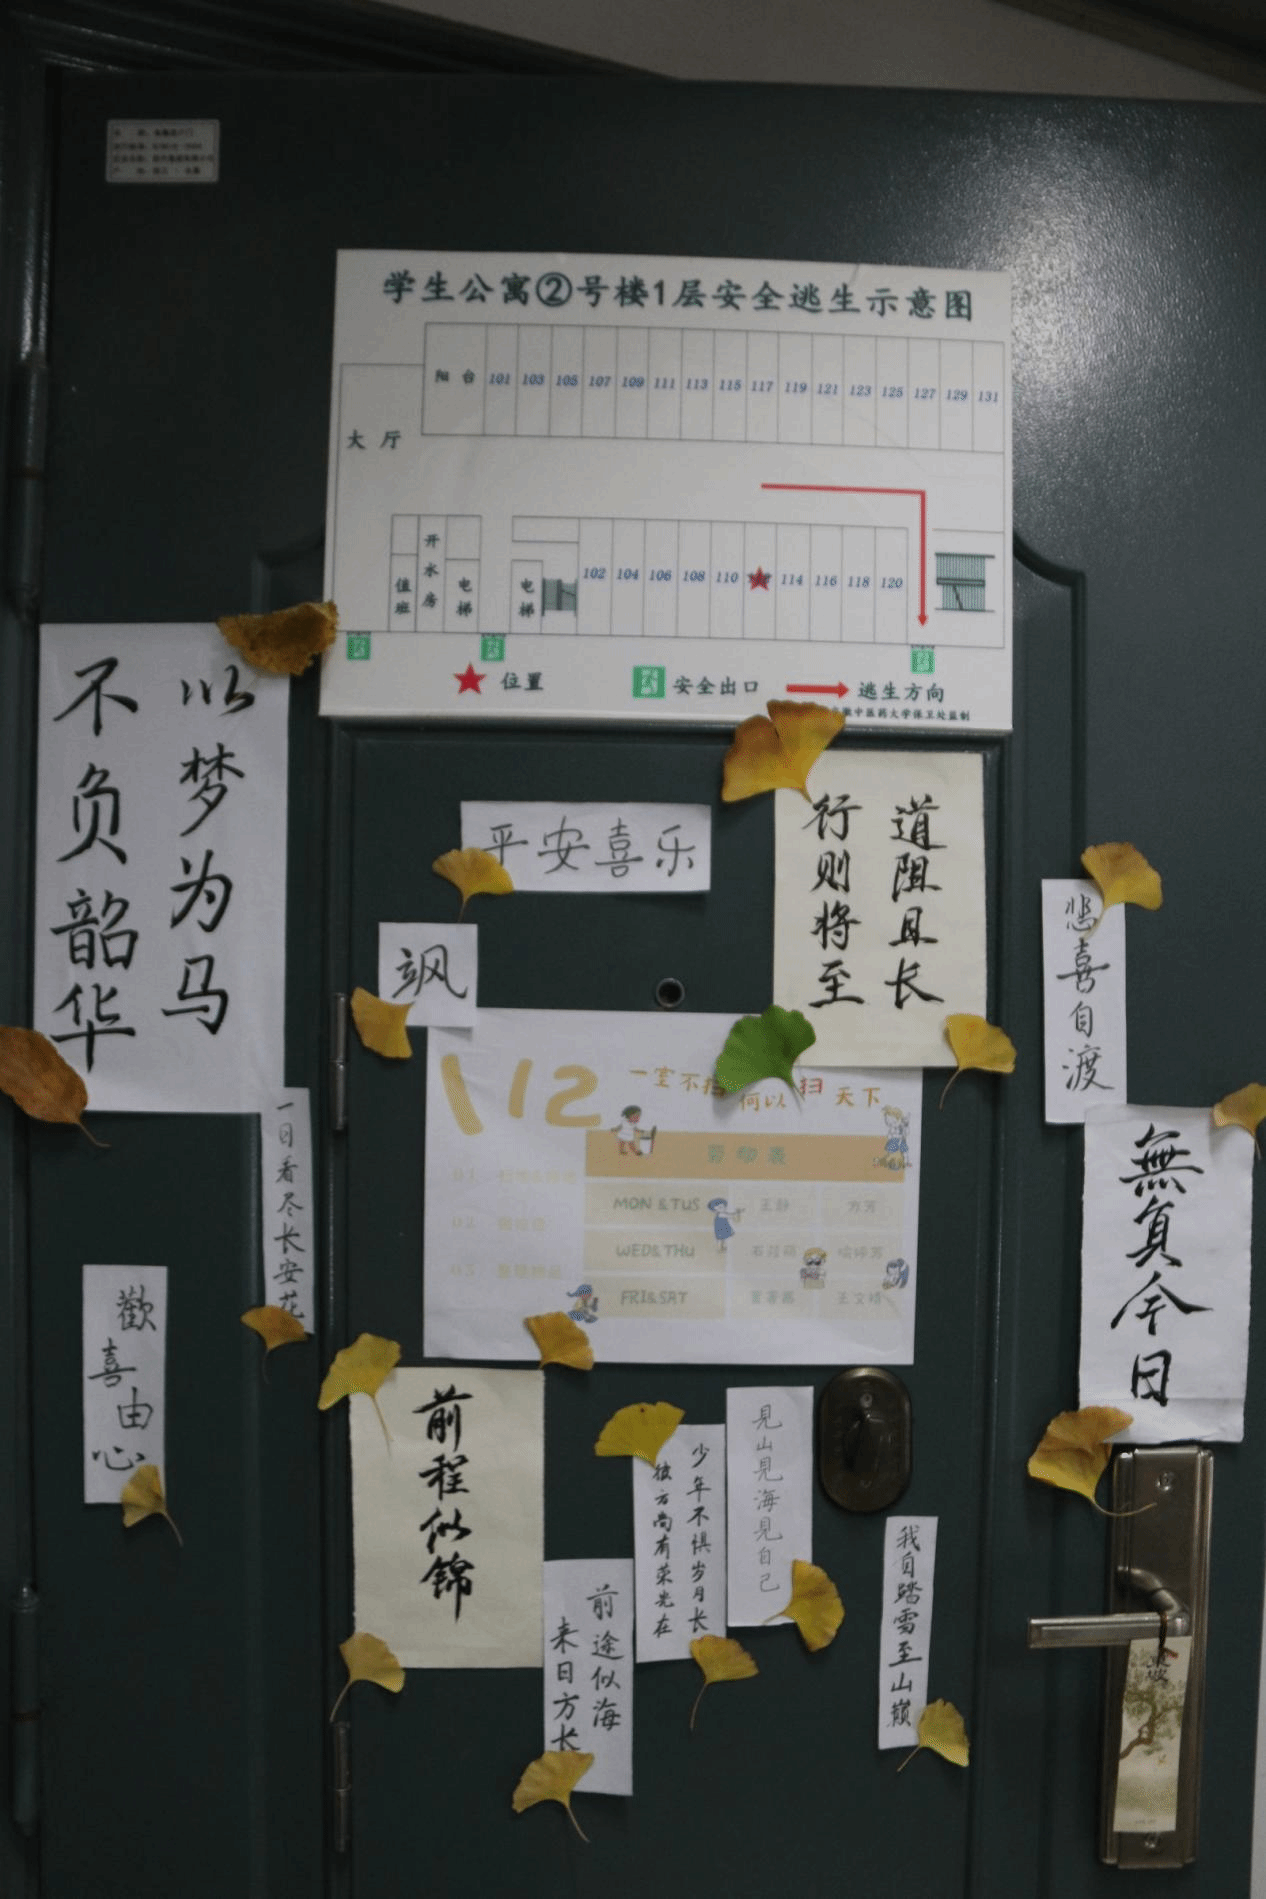 学生公寓②号楼1层安全逃生示意图
阳台 101 103 105 107 109 111 113 115 117 119 121 123 125 127 129 131
大厅
值班
开水房
电梯
电梯
102 104 106 108 110 114 116 118 120
位置
安全出口
逃生方向
中医药大学保卫处监制
以梦为马
不负韶华
平安喜乐
道阻且长
行则将至
飒
悲喜自渡
112
一室不扫
何以扫天下
劳动表
MON &TUS 王静 方芳
WED&THU
FRI&SAT 王文婧
01
02
03 整理物品
一日看尽长安花
無負今日
歡喜由心
前程似锦
见山见海见自己
少年不惧岁月长
彼方尚有荣光在
前途似海
来日方长
我自踏雪至山巅